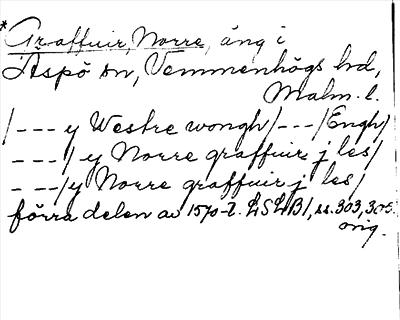 *Graffuir, Norre, äng i
Äspö sn, Vemmenhögs hd,
Malm. l.
/--- y Westre wongh/---/Engh/
---/ y Norre graffuir j les/
---/y Norre graffuir j les/
förra delen av 1570-t. LSLB1, ss. 303, 305.
orig.